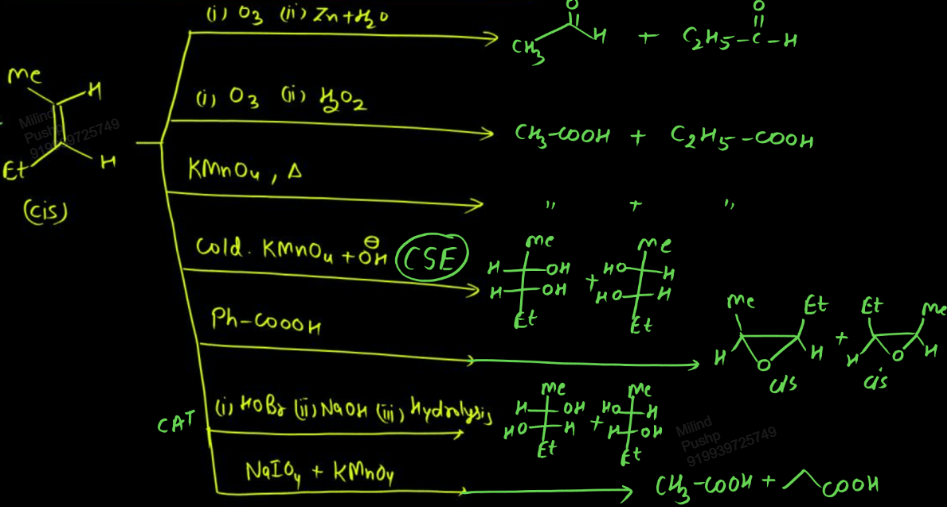 (i) O3 (ii) Zn+H2O
CH3 O H + C2H5-C-H O
Me H
Et H
(cis)
(i) O3 (ii) H2O2
CH3-COOH + C2H5-COOH
KMnO4, Δ
" + "
Cold. KMnO4 + OH⊖ (CSE)
Me H OH H OH Et + Me HO H HO H Et
Ph-COOOH
Me Et H O H + Et Me H O H
cis cis
CAT (i) HOBr (ii) NaOH (iii) Hydrolysis
Me H OH HO H Et + Me HO H H OH Et
NaIO4 + KMnO4
CH3-COOH + COOH
Milind
Pushp
919939725749
Milind
Pushp
919939725749